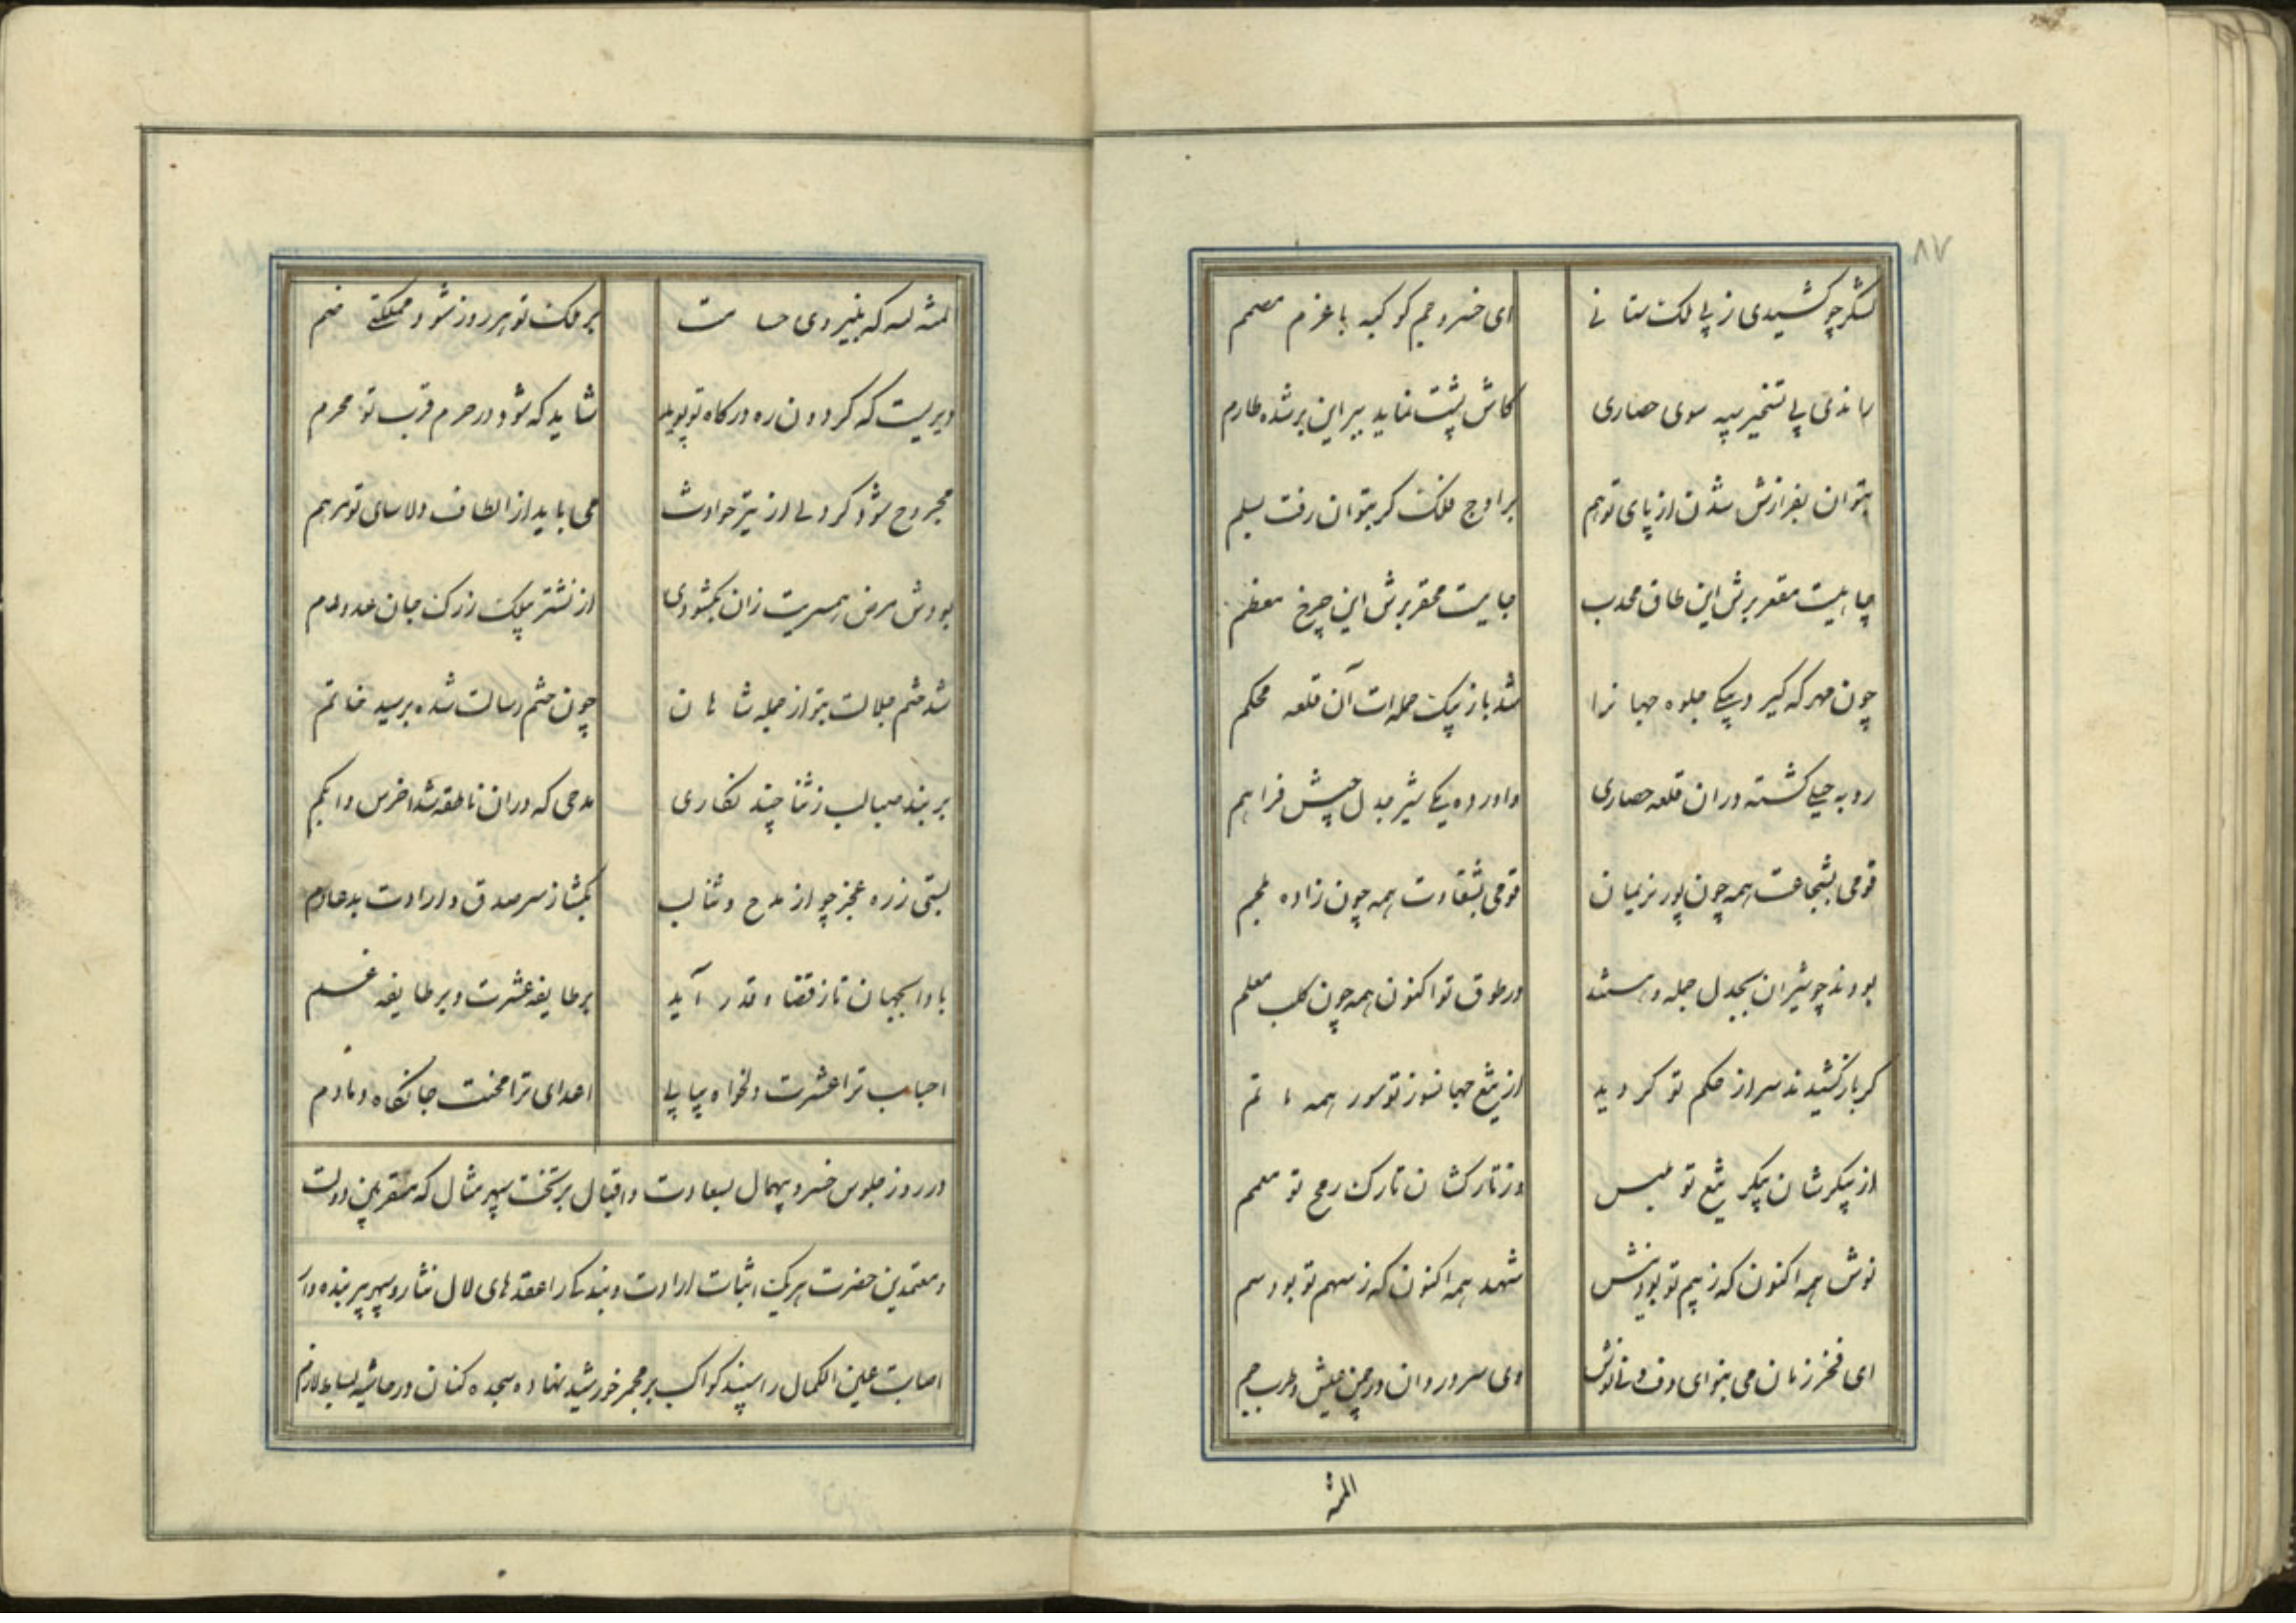 ۸۷
لشکر چو کشیدی ز پی ملک ستانی ای خسرو جم کوکبه با عزم مصمم
راندی پی تسخیر سپه سوی حصاری کاش پشت نماید ببر این بر شده طارم
بتوان بفرازش شدن از پای توهم بر اوج فلک گر بتوان رفت بسلم
چاهیست مقعر برش این طاق محدب جاییست محقر برش این چرخ معظم
چون مهر که گیرد بیکی جلوه جهانرا شد باز بیک حمله‌ات آن قلعه محکم
روبه جیلی گشته در آن قلعه حصاری واورده یکی شیر بدل جیش فراهم
قومی بشجاعت همه چون پور نریمان قومی بشقاوت همه چون زاده ملجم
بودند چو شیران بجدل جمله و هستند در طوق تو اکنون همه چون کلب معلم
گر باز کشیدند سر از حکم تو گردید از تیغ جهانسوز تو سور همه ماتم
از پیکرشان پیکر تیغ تو ملبس وز تارکشان تارک رمح تو معمم
نوش همه اکنون که ز بیم تو بود نیش شهد همه اکنون که ز سهم تو بود سم
ای فخر زمان می بنوای دف و نی نوش وی سرور دوران در چمن عیش و طرب چم
المنه
المنه لله که بنیروی حسامت بر ملک تو هر روز شود مملکتی ضم
دیریست که گردون ره درگاه تو پوید شاید که شود در حرم قرب تو محرم
مجروح شود گر دلی از تیر حوادث می باید از الطاف دلاسای تو مرهم
بودش مرض همسریت زان بگشودی از نشتر پیلک ز رگ جان عدو دم
شد ختم جلالت بتو از جمله شاهان چون ختم رسالت شده بر سید خاتم
بر بند صبا لب ز ثنا چند نگاری مدحی که در آن ناطقه شد اخرس و ابکم
بستی ز ره عجز چو از مدح و ثنا لب بگشا ز سر صدق و ارادت بدعا دم
بادا بجهان تا ز قضا و قدر آید بر طایفه عشرت و بر طایفه غم
احباب ترا عشرت دلخواه پیاپی اعدای ترا محنت جانکاه دمادم
در روز جلوس خسرو بیهمال بسعادت و اقبال بر تخت سپهر مثال که مقربین دولت
و معتمدین حضرت هر یک اثبات ارادت و بندگی را عقدهای لال نثار و سپهر پیر بنده وار
اصابت عین الکمال را سپند کواکب بر مجمر خورشید نهاده سجده کنان در حاشیه بساط لازم